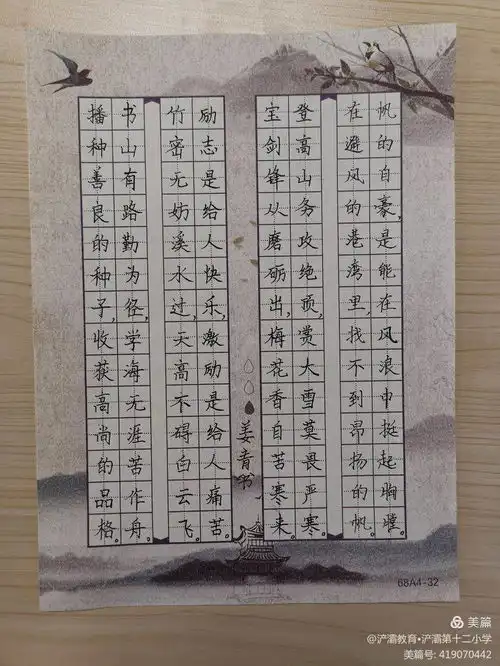 帆的自豪,是能在风浪中挺起胸膛。
在避风的港湾里,找不到昂扬的帆。
登高山务攻绝顶,赏大雪莫畏严寒。
宝剑锋从磨砺出,梅花香自苦寒来。
姜青书
励志是给人快乐,激励是给人痛苦。
竹密无妨溪水过,天高不碍白云飞。
书山有路勤为径,学海无涯苦作舟。
播种善良的种子,收获高尚的品格。
68A4-32
美篇
@浐灞教育•浐灞第十二小学
美篇号: 419070442